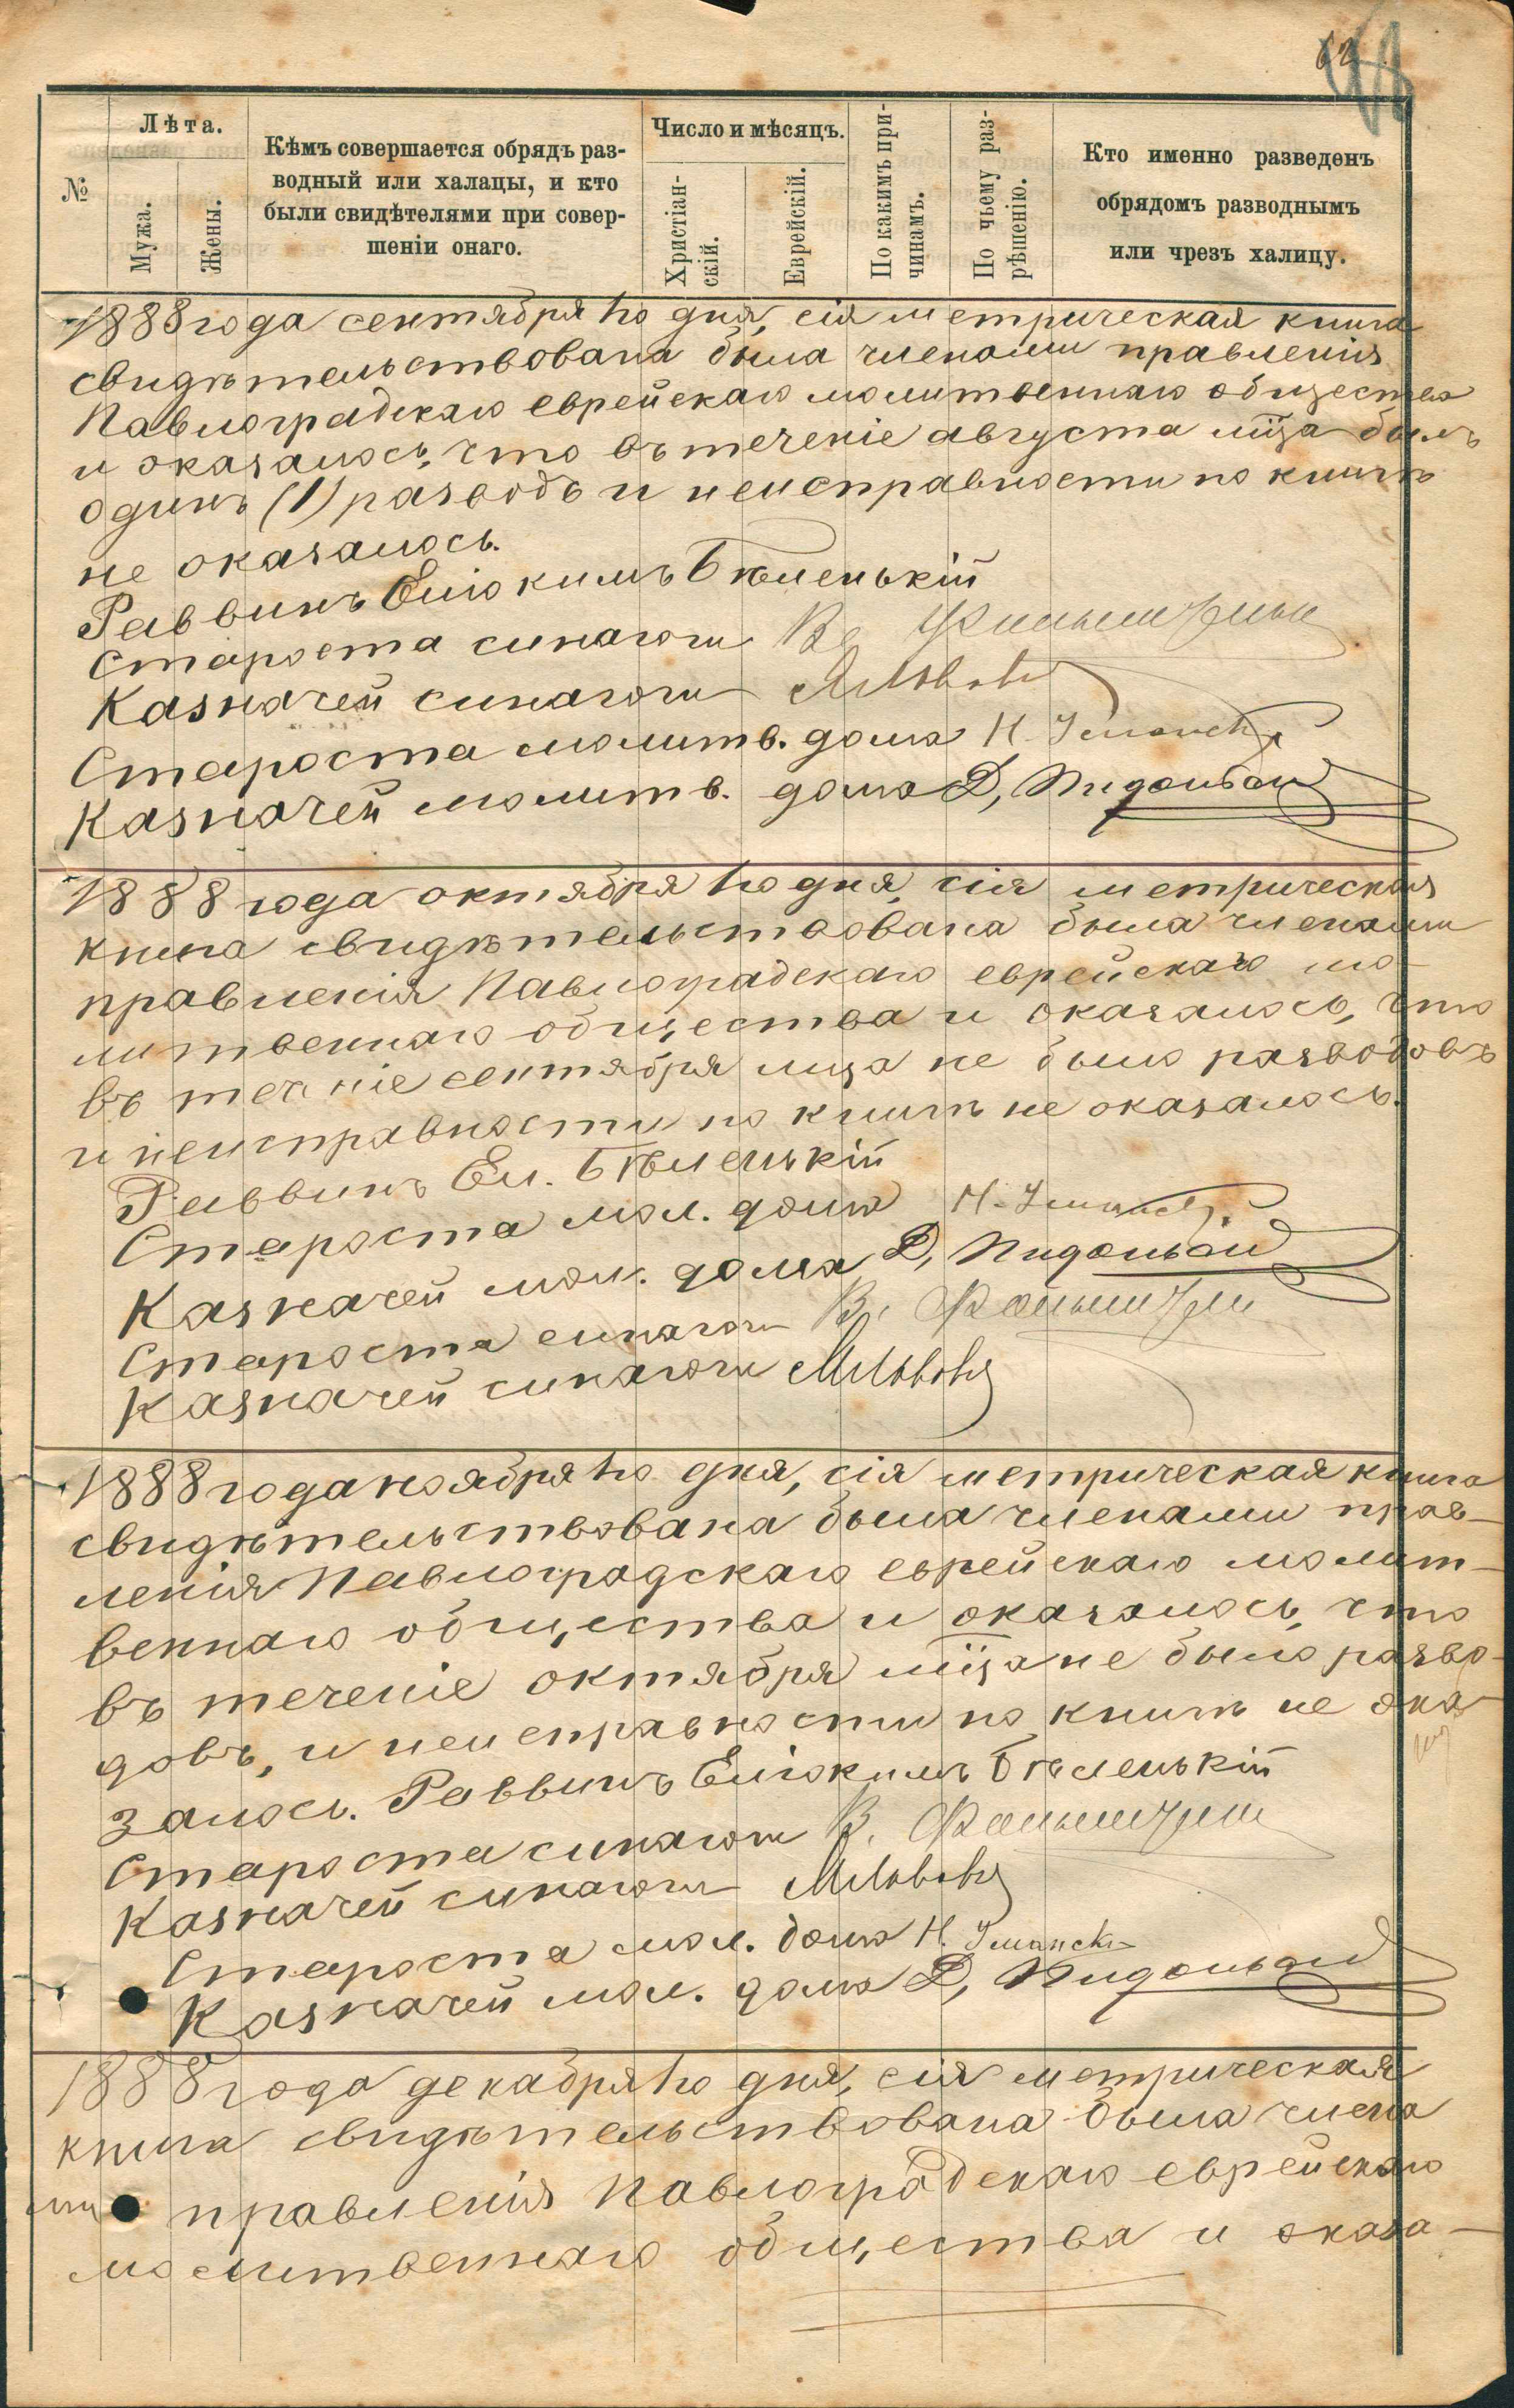 62
№
Лѣта.
Мужа.
Жены.
Кѣмъ совершается обрядъ раз-
водный или халацы, и кто
были свидѣтелями при совер-
шеніи онаго.
Число и мѣсяцъ.
Христіан-
скій.
Еврейскій.
По какимъ при-
чинамъ.
По чьему раз-
рѣшенію.
Кто именно разведенъ
обрядомъ разводнымъ
или чрезъ халицу.
1888 года сентября 1го дня, сія метрическая книга
свидѣтельствована была членами правленія
Павлоградскаго еврейскаго молитвеннаго общества
и оказалось, что въ теченіе августа мца былъ
одинъ (1) разводъ и неисправности по книгѣ
не оказалось.
Раввинъ Еліокимъ Бѣленькій
Староста синагоги В.
Казначей синагоги М Львовъ
Староста молитв. дома Н. Уманск
Казначей молитв. дома Д,
1888 года октября 1го дня, сія метрическая
книга свидѣтельствована была членами
правленія Павлоградскаго еврейскаго мо-
литвеннаго общества и оказалось, что
въ теченіе сентября мца не было разводовъ
и неисправности по книгѣ не оказалось.
Раввинъ Ел. Бѣленькій
Староста мол. дома Н. Уманск
Казначей мол. дома Д,
Староста синагоги В.
Казначей синагоги М Львовъ
1888 года ноября 1го дня, сія метрическая книга
свидѣтельствована была членами прав-
ленія Павлоградскаго еврейскаго молит-
веннаго общества и оказалось, что
въ теченіе октября мца не было разво-
довъ, и неисправности по книгѣ не ока-
залось. Раввинъ Еліокимъ Бѣленькій
Староста синагоги В.
Казначей синагоги М Львовъ
Староста мол. дома Н. Уманск
Казначей мол. дома Д,
1888 года декабря 1го дня, сія метрическая
книга свидѣтельствована была члена
ми правленія Павлоградскаго еврейскаго
молитвеннаго общества и оказа-